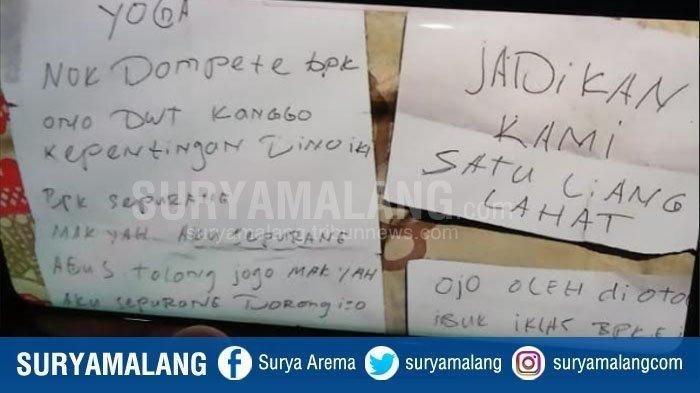 YOGA
NOK DOMPETE bpk
ONO DWT KANGGO
KEPENTINGAN DINO iKi
BPK SEPURANE
MAK YAH AKU SEPURANE
AGUS tolong jogo MAK YAH
AKU SEPURANE DORONG iSO
JADIKAN
KAMI
SATU LIANG
LAHAT
OJO OLEH di OTO
IBUK IKLAS BPK
SURYAMALANG.com
suryamalang.tribunnews.com
SURYAMALANG
Surya Arema
suryamalang
suryamalangcom